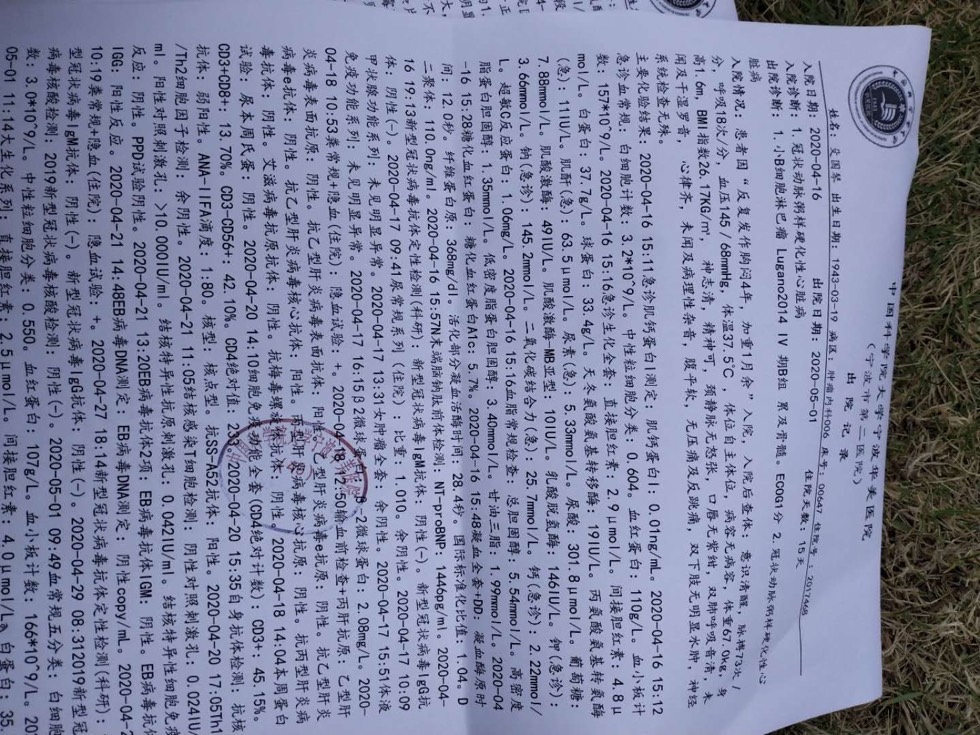 中国科学院大学宁波华美医院
（宁波市第二医院）
出 院 记 录
姓名：史国琴 出生日期：1943-03-19 病区：肿瘤内科006 床号：00647 住院号：2017466
入院日期：2020-04-16 出院日期：2020-05-01 住院天数：15天
入院诊断：1.冠状动脉粥样硬化性心脏病
出院诊断：1.小B细胞淋巴瘤 Lugano2014 IV 期B组 累及骨髓。ECOG1分 2.冠状动脉粥样硬化性心
脏病
入院情况：患者因“反复发作胸闷4年，加重1月余”入院，入院后查体：意识清醒，脉搏73次/
分，呼吸18次/分，血压145/68mmHg，体温37.5℃，体位自主体位，病容无病容，体重67.0kg，身
高1.6m，BMI指数26.17KG/m²，神志清，精神可，颈静脉无怒张，口唇无紫绀，双肺呼吸音清，未
闻及干湿罗音，心律齐，未闻及病理性杂音，腹平软，无压痛及反跳痛，双下肢无明显水肿，神经
系统检查无殊。
主要化验结果：2020-04-16 15:11急诊肌钙蛋白I测定：肌钙蛋白I：0.01ng/mL。2020-04-16 15:12
急诊血常规：白细胞计数：3.2*10^9/L。中性粒细胞分类：0.604。血红蛋白：110g/L。血小板计
数：157*10^9/L。2020-04-16 15:16急诊生化全套：直接胆红素：2.9μmol/L。间接胆红素：4.8μ
mol/L。白蛋白：37.7g/L。球蛋白：33.4g/L。天冬氨酸氨基转移酶：19IU/L。丙氨酸氨基转氨酶
（急）：11IU/L。肌酐（急）：63.5μmol/L。尿素（急）：5.33mmol/L。尿酸：301.8μmol/L。葡萄糖：
7.88mmol/L。肌酸激酶：49IU/L。肌酸激酶-MB亚型：10IU/L。乳酸脱氨酶：146IU/L。钾（急诊）：
3.66mmol/L。钠（急诊）：145.2mmol/L。二氧化碳结合力（急）：25.7mmol/L。钙（急诊）：2.22mmol/
L。超敏C反应蛋白：1.06mg/L。2020-04-16 15:16血脂常规检查：总胆固醇：5.54mmol/L。高密度
脂蛋白胆固醇：1.35mmol/L。低密度脂蛋白胆固醇：3.40mmol/L。甘油三脂：1.99mmol/L。2020-04
-16 15:28糖化血红蛋白：糖化血红蛋白A1c：5.7%。2020-04-16 15:48凝血全套+DD：凝血酶原时
间：12.0秒。纤维蛋白原：368mg/dl。活化部分凝血活酶时间：28.4秒。国际标准化比值：1.04。D
二聚体：110.0ng/ml。2020-04-16 15:57N末端脑钠肽前体检测：NT-proBNP：1446pg/ml。2020-04-
16 19:13新型冠状病毒抗体定性检测（科研）：新型冠状病毒IgM抗体：阴性(-)。新型冠状病毒IgG抗
体：阴性(-)。2020-04-17 09:41尿常规系列（住院）：比重：1.010。余阴性。2020-04-17 10:09
甲状腺功能系列：未见明显异常。2020-04-17 13:31女肿瘤全套：余阴性。2020-04-17 15:51体液
免疫功能系列：未见明显异常。2020-04-17 16:15β2微球蛋白：β2微球蛋白：2.08mg/L。2020-
04-18 10:53粪常规+隐血（住院）：隐血试验：+。2020-04-18 12:50输血前检查+丙肝抗原：乙型肝
炎病毒表面抗原：阴性。抗乙型肝炎病毒表面抗体：阳性。乙型肝炎病毒e抗原：阴性。抗乙型肝炎
病毒e抗体：阴性。抗乙型肝炎病毒核心抗体：阳性。丙型肝炎病毒核心抗原：阴性。抗丙型肝炎病
毒抗体：阴性。艾滋病毒抗原抗体：阴性。抗梅毒螺旋体抗体：阴性。2020-04-18 14:04本周蛋白
试验：尿本周氏蛋：阴性。2020-04-20 14:10细胞免疫功能全套（CD4绝对计数）：CD3+：45.15%。
CD3+CD8+：13.70%。CD3-CD56+：42.10%。CD4绝对值：293。2020-04-20 15:35自身抗体检测：抗核
抗体：弱阳性。ANA-IIFA滴度：1:80。核型：核点型。抗SS-A52抗体：阳性。2020-04-20 17:05Th1
/Th2细胞因子检测：余阴性。2020-04-21 11:05结核感染T细胞检测：阴性对照刺激孔：0.024IU/
ml。阳性对照刺激孔：>10.000IU/ml。结核特异性抗原刺激孔：0.042IU/ml。结核特异性细胞免疫
反应：阴性。PPD试验阴性。2020-04-21 13:20EB病毒抗体2项：EB病毒抗体IGM：阴性。EB病毒抗体
IGG：阳性反应。2020-04-21 14:48EB病毒DNA测定：EB病毒DNA测定：阴性copy/mL。2020-04-2
10:19粪常规+隐血（住院）：隐血试验：+。2020-04-27 18:14新型冠状病毒抗体定性检测（科研）：
型冠状病毒IgM抗体：阴性(-)。新型冠状病毒IgG抗体：阴性(-)。2020-04-29 08:312019新型冠
病毒核酸检测：2019新型冠状病毒核酸检测：阴性(-)。2020-05-01 09:49血常规五分类：白细胞
数：3.0*10^9/L。中性粒细胞分类：0.550。血红蛋白：107g/L。血小板计数：166*10^9/L。202
05-01 11:14大生化系列：直接胆红素：2.5μmol/L。间接胆红素：4.0μmol/L。白蛋白：35.